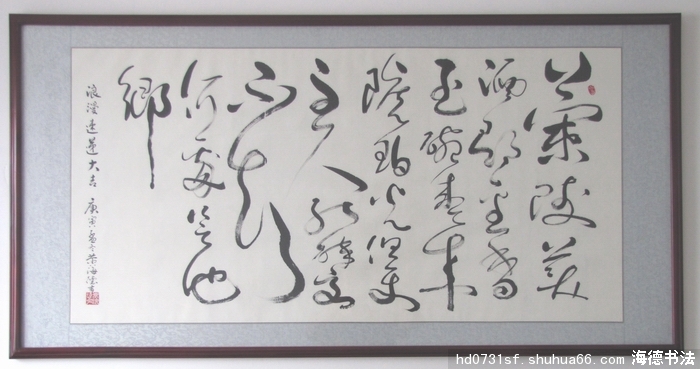 蘭陵美
酒郁金香
玉碗盛来
琥珀光但使
主人能醉客
不知
何處是他
鄉
浪漫 大吉 庚寅 海德
hd0731sf.shuhua66.com 海德书法